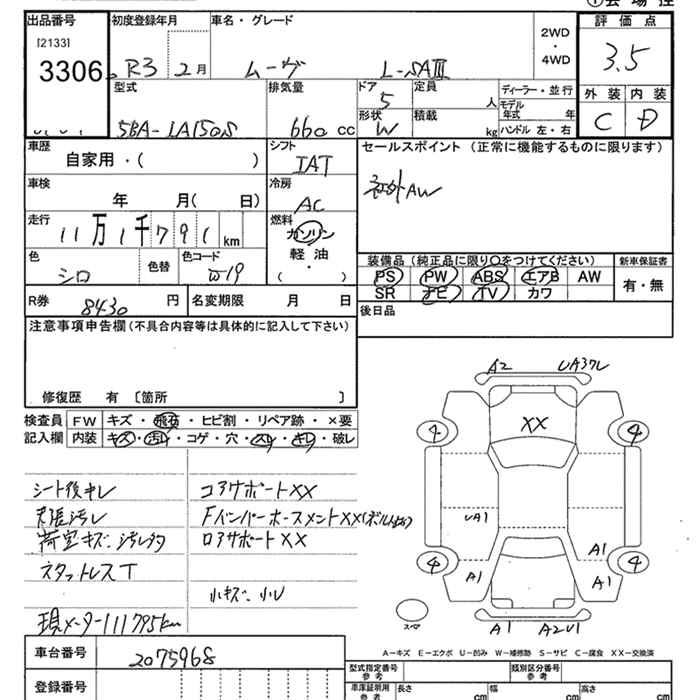 ①会場控
出品番号 初度登録年月 車名・グレード 2WD ・ 4WD 評価点
[2133] 3306 R3 2月 ムーヴ L-SAⅢ 3.5
型式 排気量 ドア 定員 人 ディーラー・並行 外装 内装
5BA-LA150S 660 cc 5 形状 W 積載 kg モデル年式 年 ハンドル 左・右 C D
車歴 自家用・( ) シフト IAT セールスポイント (正常に機能するものに限ります)
車検 年 月( 日) 冷房 AC 社外AW
走行 11万1千791km 燃料 ガソリン 軽油 ( ・ )
色 シロ 色替 色コード W19
装備品 (純正品に限り○をつけてください) 新車保証書
PS PW ABS エアB AW 有・無
SR ナビ TV カワ
R券 8430円 名変期限 月 日 後日品
注意事項申告欄 (不具合内容等は具体的に記入して下さい)
修復歴 有 〔箇所 〕
検査員 FW キズ・飛石・ヒビ割・リペア跡・×要
記入欄 内装 キズ・汚レ・コゲ・穴・スレ・キレ・破レ
シート後キレ コアサポートXX
天張汚レ FバンパーホースメントXX
荷室キズ、汚レ ロアサポートXX
スタットレスT
小キズ、小U
現メーター111795km
A2 UA37U
XX
4 4
UA1
A1
4 4
A1 A1
スペア
A1 A2U1
A-キズ E-エクボ U-凹み W-補修跡 S-サビ C-腐食 XX-交換済
車台番号 2075968
型式指定番号 参考 類別区分番号 参考
登録番号
車庫証明用 参考 長さ cm 幅 cm 高さ cm